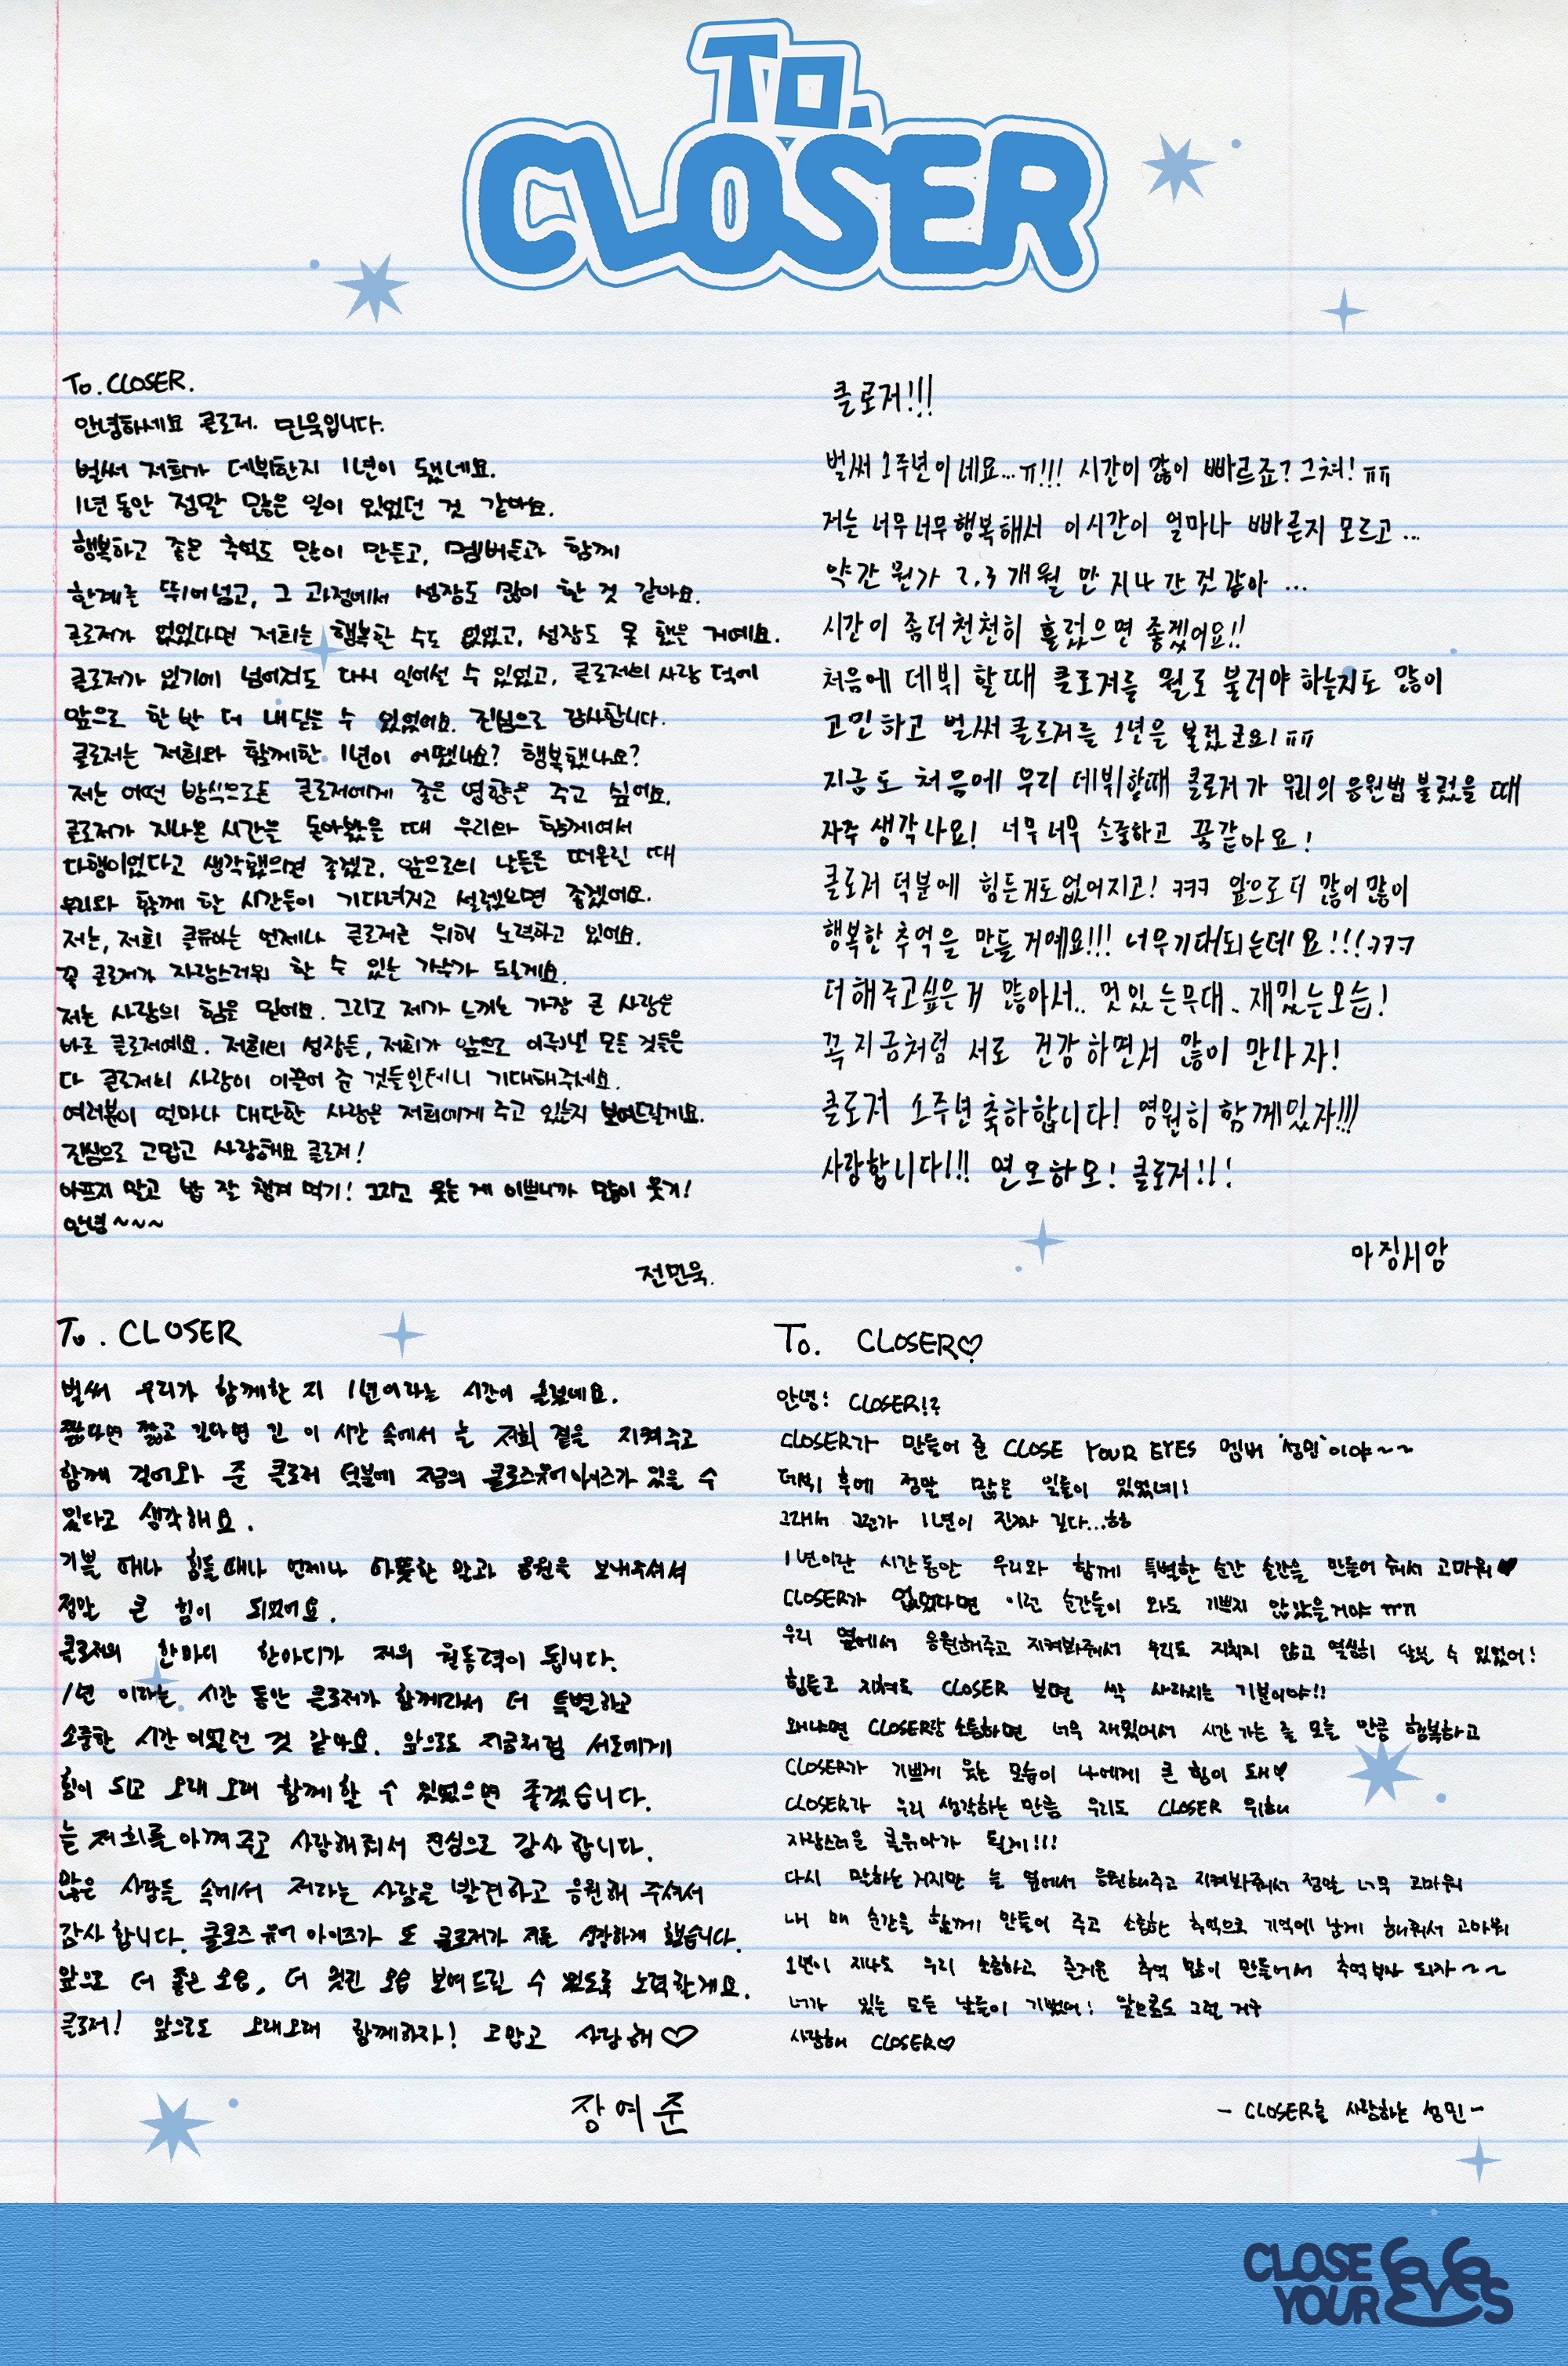 To.
CLOSER
To. CLOSER.
안녕하세요 클로저. 민욱입니다.
벌써 저희가 데뷔한지 1년이 됐네요.
1년 동안 정말 많은 일이 있었던 것 같아요.
행복하고 좋은 추억도 많이 만들고, 멤버들과 함께
한계를 뛰어넘고, 그 과정에서 성장도 많이 한 것 같아요.
클로저가 없었다면 저희는 행복할 수도 없었고, 성장도 못 했을 거예요.
클로저가 있기에 넘어져도 다시 일어설 수 있었고, 클로저의 사랑 덕에
앞으로 한 발 더 내딛을 수 있었어요. 진심으로 감사합니다.
클로저는 저희와 함께한 1년이 어땠나요? 행복했나요?
저는 어떤 방식으로든 클로저에게 좋은 영향을 주고 싶어요.
클로저가 지나온 시간을 돌아봤을 때 우리와 함께여서
다행이었다고 생각했으면 좋겠고, 앞으로의 날들을 떠올릴 때
우리와 함께 할 시간들이 기다려지고 설렜으면 좋겠어요.
저는, 저희 클유아는 언제나 클로저를 위해 노력하고 있어요.
꼭 클로저가 자랑스러워 할 수 있는 가수가 될게요.
저는 사랑의 힘을 믿어요. 그리고 제가 느끼는 가장 큰 사랑은
바로 클로저예요. 저희의 성장들, 저희가 앞으로 이뤄낼 모든 것들은
다 클로저의 사랑이 이끌어 준 것들일테니 기대해주세요.
여러분이 얼마나 대단한 사랑을 저희에게 주고 있는지 보여드릴게요.
진심으로 고맙고 사랑해요 클로저!
아프지 말고 밥 잘 챙겨 먹기! 그리고 웃는 게 이쁘니까 많이 웃기!
안녕~~~
전민욱.
클로저!!!
벌써 1주년이네요...ㅠ!!! 시간이 많이 빠르죠? 그쵸! ㅠㅠ
저는 너무너무행복해서 이시간이 얼마나 빠른지 모르고...
약간 뭔가 2,3개월 만 지나간것같아 ...
시간이 좀더천천히 흘렀으면 좋겠어요!!
처음에 데뷔 할때 클로저를 뭘로 불러야 하는지도 많이
고민하고 벌써 클로저를 1년을 불렀군요! ㅠㅠ
지금도 처음에 우리 데뷔할때 클로저가 우리의 응원법 불렀을 때
자주 생각나요! 너무너무 소중하고 꿈같아요!
클로저 덕분에 힘든거도없어지고! ㅋㅋㅋ 앞으로 더 많이많이
행복한 추억을 만들거예요!!! 너무기대되는데요!!!ㅋㅋㅋ
더해주고싶은거 많아서.. 멋있는무대.. 재밌는모습!
꼭지금처럼 서로 건강하면서 많이 만나자!
클로저 1주년축하합니다! 영원히 함께있자!!!
사랑합니다!!! 연모하모! 클로저!!!
마징시앙
To. CLOSER
벌써 우리가 함께한 지 1년이라는 시간이 흘렀네요.
짧다면 짧고 길다면 긴 이 시간 속에서 늘 저희 곁을 지켜주고
함께 걸어와 준 클로저 덕분에 지금의 클로즈유어아이즈가 있을 수
있다고 생각해요.
기쁠 때나 힘들때나 언제나 따뜻한 말과 응원을 보내주셔서
정말 큰 힘이 되었어요.
클로저의 한마디 한마디가 저의 원동력이 됩니다.
1년 이라는 시간 동안 클로저가 함께라서 더 특별하고
소중한 시간 이었던 것 같아요. 앞으로도 지금처럼 서로에게
힘이 되고 오래오래 함께할 수 있었으면 좋겠습니다.
늘 저희를 아껴주고 사랑해줘서 진심으로 감사합니다.
많은 사람들 속에서 저라는 사람을 발견하고 응원해 주셔서
감사합니다. 클로즈 유어 아이즈가 또 클로저가 저를 성장하게 했습니다.
앞으로 더 좋은 모습, 더 멋진 모습 보여드릴 수 있도록 노력할게요.
클로저! 앞으로도 오래오래 함께하자! 고맙고 사랑해♡
장여준
To. CLOSER♡
안녕! CLOSER!?
CLOSER가 만들어 준 CLOSE YOUR EYES 멤버 '성민'이야~~
데뷔 후에 정말 많은 일들이 있었네!
그래서 그런가 1년이 진짜 길다...ㅎㅎ
1년이란 시간동안 우리와 함께 특별한 순간 순간을 만들어 줘서 고마워♥
CLOSER가 없었다면 이런 순간들이 와도 기쁘지 않았을거야 ㅠㅠ
우리 옆에서 응원해주고 지켜봐줘서 우리도 지치지 않고 열심히 달릴 수 있었어!
힘들고 지쳐도 CLOSER 보면 싹 사라지는 기분이야!!
왜냐면 CLOSER랑 소통하면 너무 재밌어서 시간 가는 줄 모를 만큼 행복하고
CLOSER가 기쁘게 웃는 모습이 나에게 큰 힘이 돼♡
CLOSER가 우리 생각하는 만큼 우리도 CLOSER 위해
자랑스러운 클유아가 될게!!!
다시 말하는 거지만 늘 옆에서 응원해주고 지켜봐줘서 정말 너무 고마워
내 매 순간을 함께 만들어 주고 소중한 추억으로 기억에 남게 해줘서 고마워
1년이 지나도 우리 소중하고 즐거운 추억 많이 만들어서 추억부자 되자~~
너가 있는 모든 날들이 기뻤어! 앞으로도 그럴 거구
사랑해 CLOSER♡
- CLOSER를 사랑하는 성민 -
CLOSE
YOUR EYES